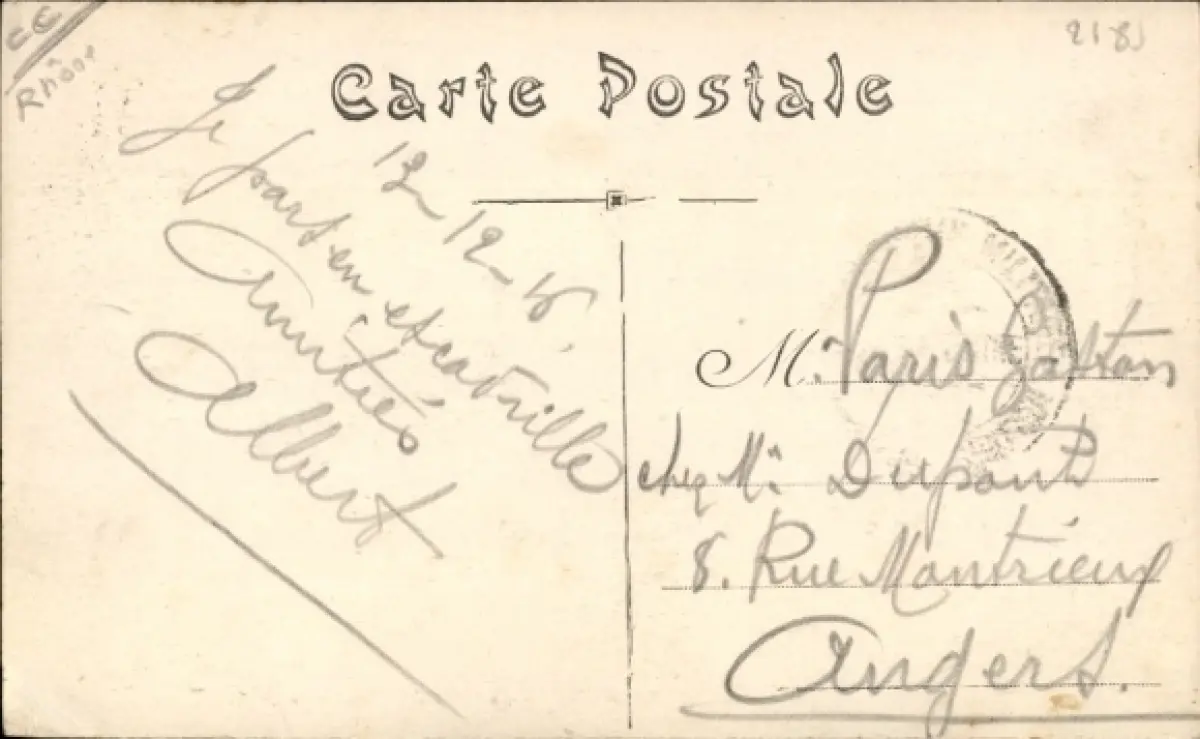 CE
Rhône
2185
Carte Postale
12-12-15.
Je pars en escadrille
Amitiés
Albert
M. Paris Gaston
chez Mr Dupont
8. Rue Montrieux
Angers.